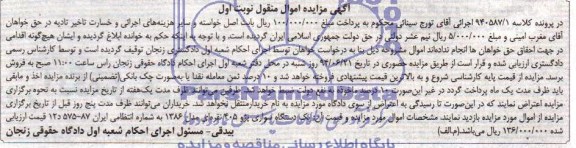 آگهی مزایده اموال منقول نوبت اول
در پرونده کلاسه ۹۴۰۵۸۷/۱ اجرائی آقای تورج سینائی محکوم به پرداخت مبلغ ۱۰۰/۰۰۰/۰۰۰ ریال بابت اصل خواسته و سایر هزینه‌های اجرائی و خسارت تاخیر تادیه در حق خواهان
آقای مقرب امینی و مبلغ ۵/۰۰۰/۰۰۰ ریال نیم عشر دولتی در حق دولت جمهوری اسلامی ایران گردیده است. و با توجه به اینکه حکم به خوانده ابلاغ گردیده و ایشان هیچ‌گونه اقدامی
در جهت احقاق حق خواهان‌ها انجام نداده‌اند اموال مشروحه ذیل بنا به درخواست خواهان توسط اجرای احکام شعبه اول دادگستری زنجان توقیف گردیده است و توسط کارشناس رسمی
دادگستری ارزیابی شده و قرار است از طریق مزایده حضوری در تاریخ روز شنبه در محل دفتر شعبه اول اجرای احکام دادگاه حقوقی زنجان راس ساعت ۱۱:۰۰ صبح به فروش
برسد. مزایده از قیمت پایه کارشناسی شروع و به بالاترین قیمت پیشنهادی واگذار خواهد شد و ۱۰ درصد ثمن معامله نقدا یا به صورت چک بانکی(تضمینی) از برنده مزایده اخذ و مابقی
باید ظرف مدت یک ماه پرداخت گردد در غیر این‌صورت سپرده ماخوذه به نفع دولت ضبط خواهد شد. طرفین می‌توانند ظرف مدت یک‌هفته از تاریخ مزایده نسبت به نحوه برگزاری
مزایده اعتراض نمایند که در این‌صورت تا رسیدگی به اعتراض از سوی دادگاه مورد مزایده به نام خریدار منتقل نخواهد شد. خریداران می‌توانند ظرف مدت پنج روز قبل از تاریخ برگزاری
مزایده از اموال مورد مزایده بازدید نمایند. مشخصات اموال مورد مزایده و قیمت آن: یک دستگاه سواری پژو ۴۰۵ نقره‌ای مدل ۱۳۸۶ به شماره انتظامی ایران ۸۷-۵۷۵ ۱۲ قیمت ارزیابی
شده ۱۳۶/۰۰۰/۰۰۰ ریال می‌باشد.(م.الف)
بیدقی - مسئول اجرای احکام شعبه اول دادگاه حقوقی زنجان
ParsNamadData
پایگاه اطلاع رسانی مناقصه و مزایده